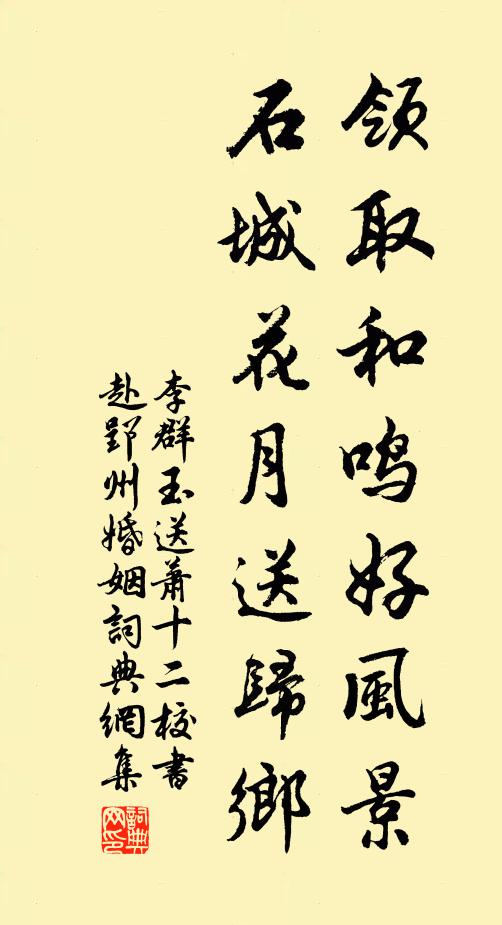 领取和鸣好風景
石城花月送歸鄉
李群玉送蕭十二校書
赴郢州婚姻詞典網集
詞典
网印